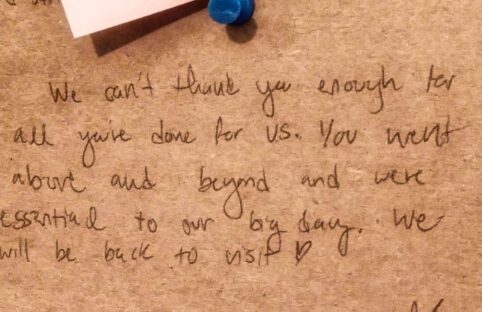 We can't thank you enough for
all you've done for us. You went
above and beyond and were
essential to our big day. We
will be back to visit ♡